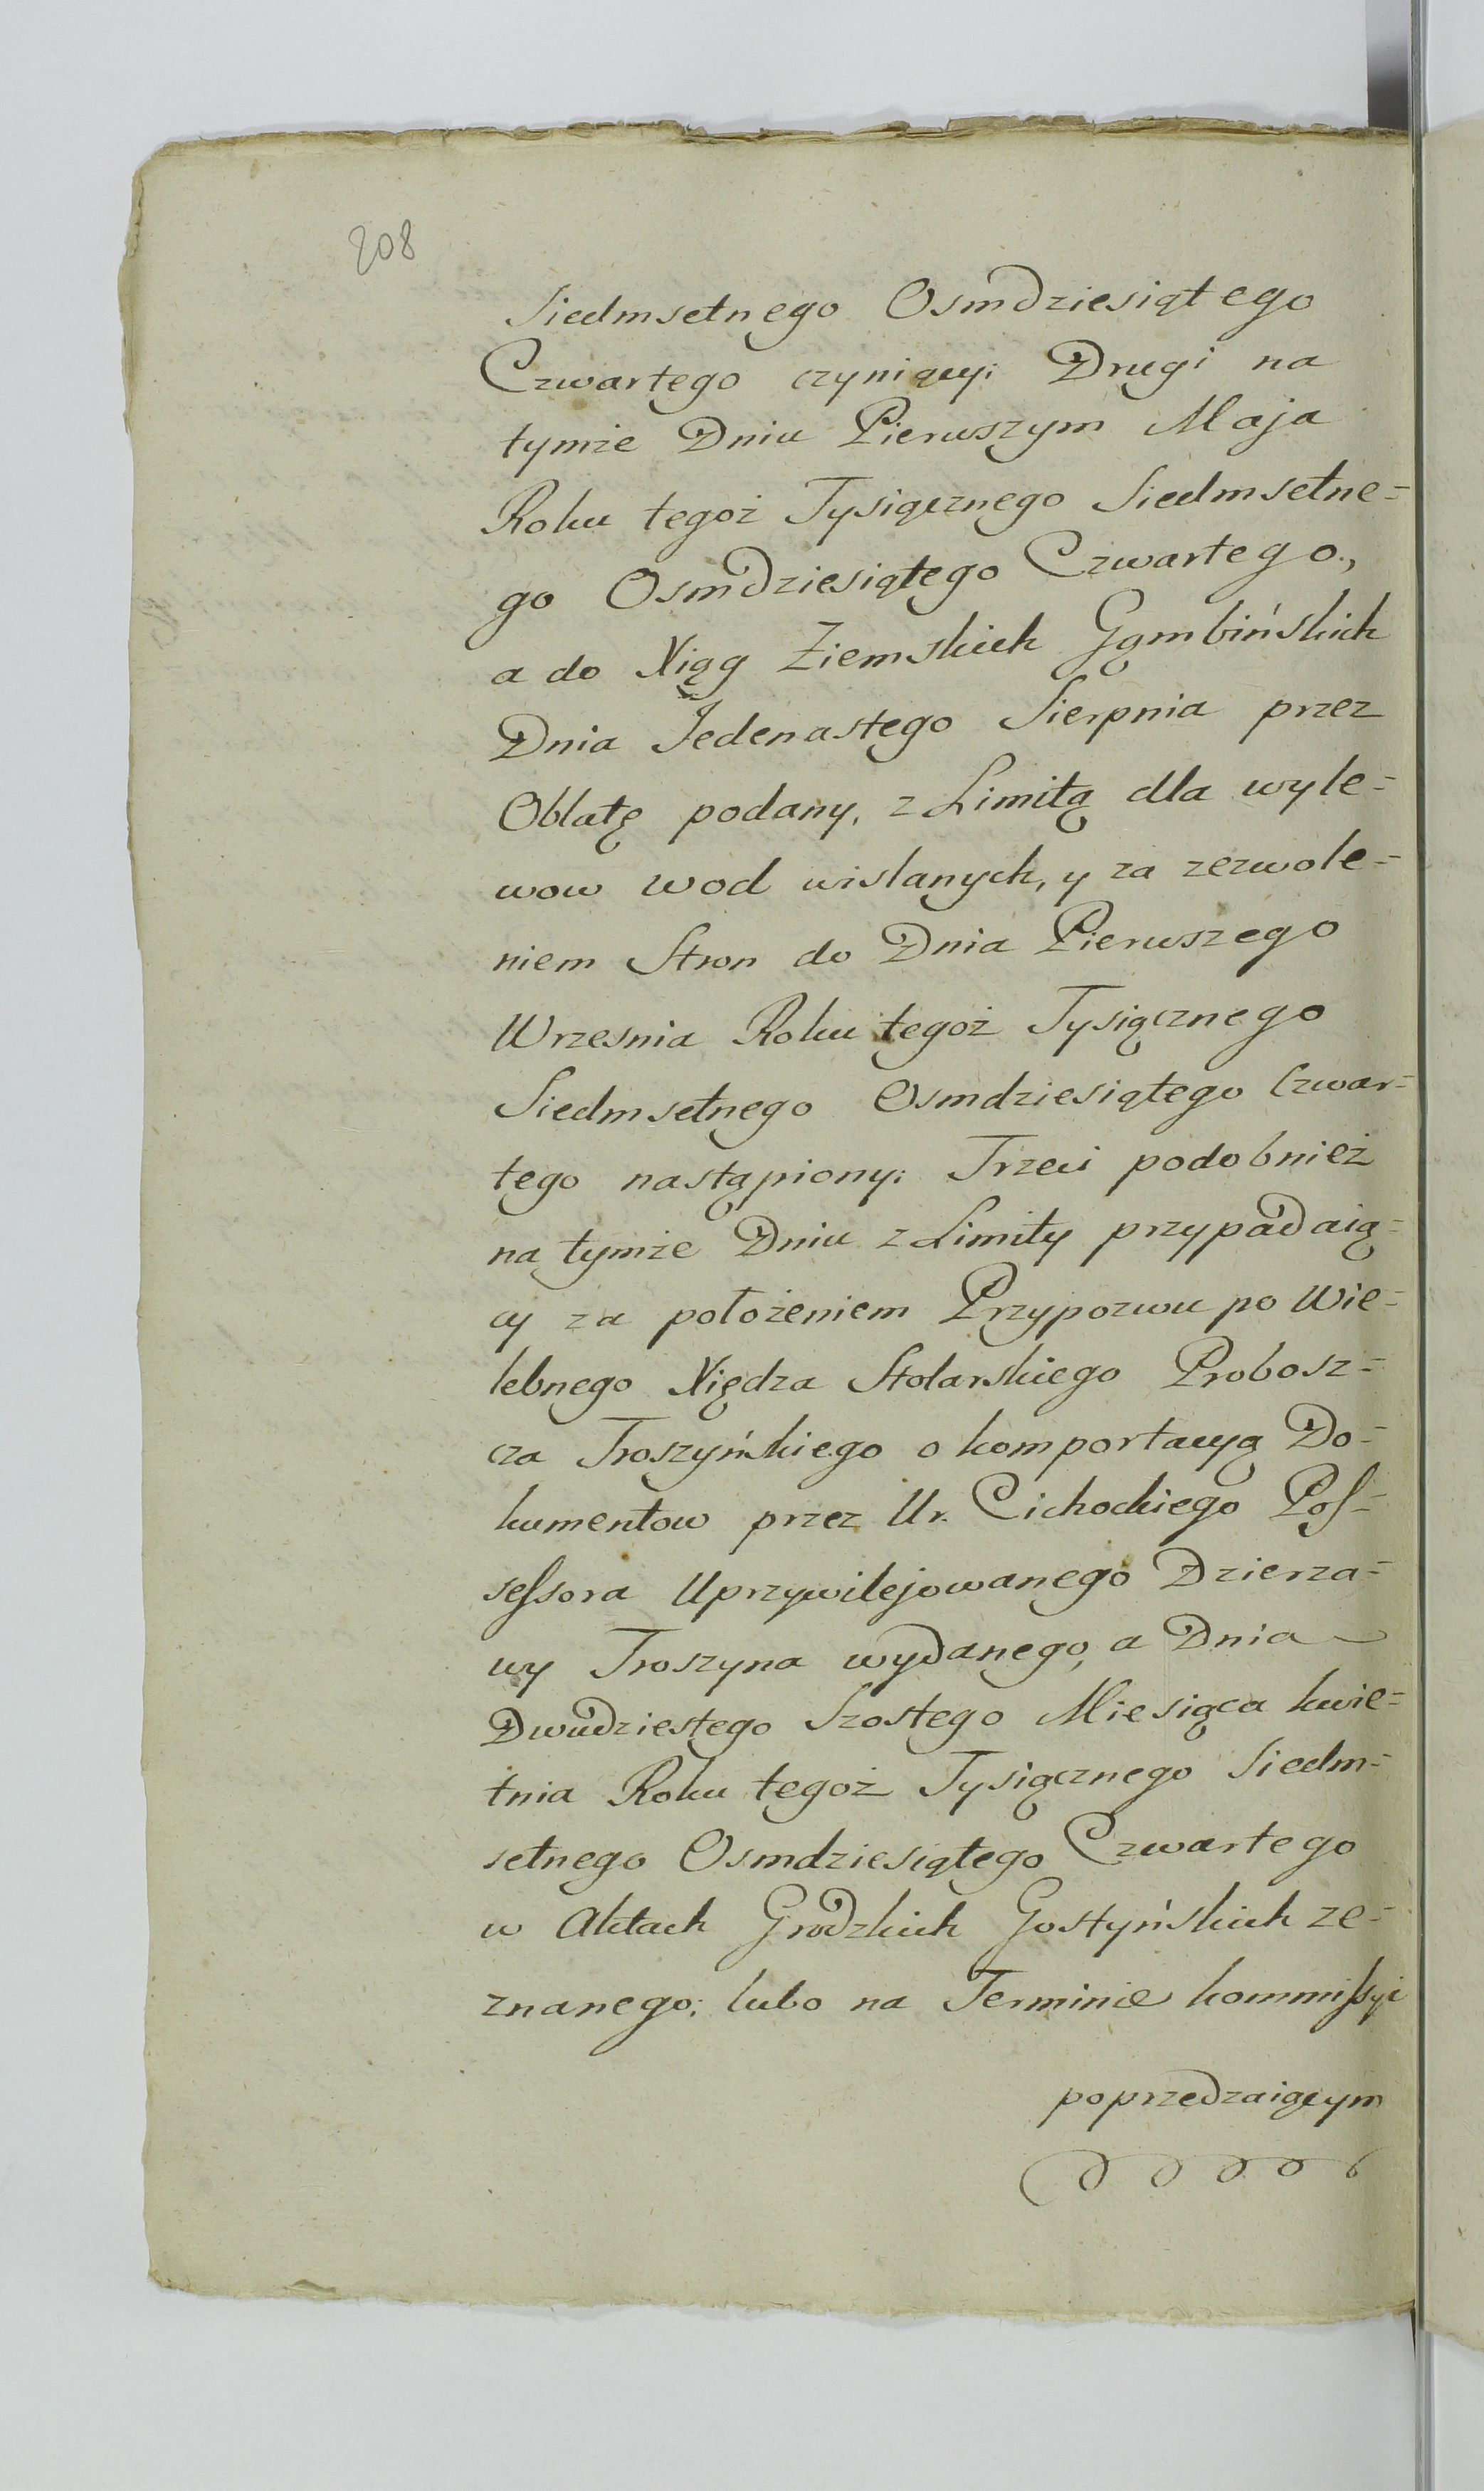 208
Siedmsetnego Osmdziesiątego
Czwartego czyniący; Drugi na
tymże Dniu Pierwszym Maja
Roku tegoż Tysiącznego Siedmsetne=
go Osmdziesiątego Czwartego,
a do Xiąg Ziemskich Gąmbińskich
Dnia Jedenastego Sierpnia przez
Oblatę podany, z Limitą dla wyle=
wow wod wislanych, y za zezwole=
niem Stron do Dnia Pierwszego
Wrzesnia Roku tegoż Tysiącznego
Siedmsetnego Osmdziesiątego Czwar=
tego nastąpiony; Trzeci podobnież
na tymże Dniu z Limity przypadaią=
cy za położeniem Przypozwu po Wie=
lebnego Xiędza Stolarskiego Probosz=
cza Troszyńskiego o komportacyą Do=
kumentow przez Ur. Cichockiego Pos=
sessora Uprzywilejowanego Dzierza=
wy Troszyna wydanego, a Dnia
Dwudziestego Szostego Miesiąca kwie=
tnia Roku tegoż Tysiącznego Siedm=
setnego Osmdziesiątego Czwartego
w Aktach Grodzkich Gostyńskich ze=
znanego; lubo na Terminie kommissyi
poprzedzaiącym